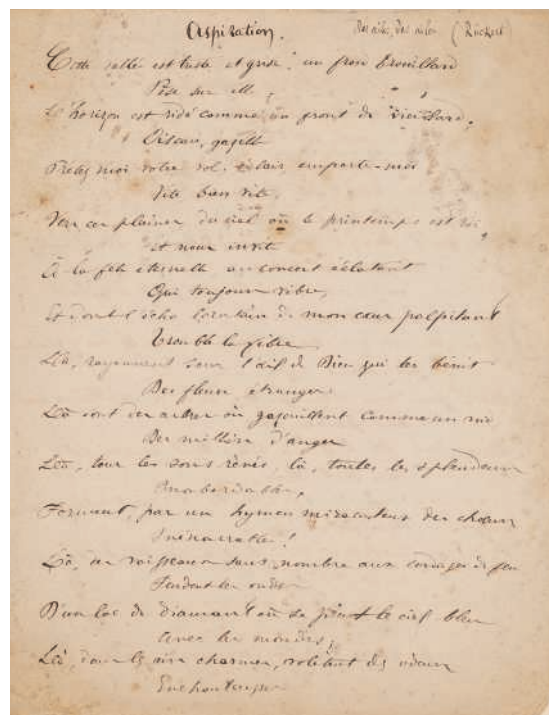 Aspiration.
Des ailes, des ailes (Rückert)
Cette vallée est triste et grise : un froid brouillard
Pèse sur elle ;
L'horizon est ridé comme un front de vieillard,
Oiseau, gazelle
Prêtez-moi votre vol, éclair emporte-moi
Vite bien vite.
Vers ces plaines du ciel où le printemps est roi,
Et nous invite
À la fête éternelle au concert éclatant
Qui toujours vibre,
Et dont l'écho lointain de mon cœur palpitant
Trouble la fibre
Là, rayonnent sous l'œil de Dieu qui les bénit
Des fleurs étranges
Là sont des arbres où gazouillent comme un nid
Des milliers d'anges
Là, tous les sons rêvés, là, toutes les splendeurs
Inabordables,
Forment, par un hymen miraculeux des chœurs
Inénarrables !
Là, des vaisseaux sans nombre aux cordages de feu
Fendent les ondes
D'un lac de diamant où se peint le ciel bleu
Avec les mondes ;
Là, dans les airs charmés, voltigent des odeurs
Enchanteresses